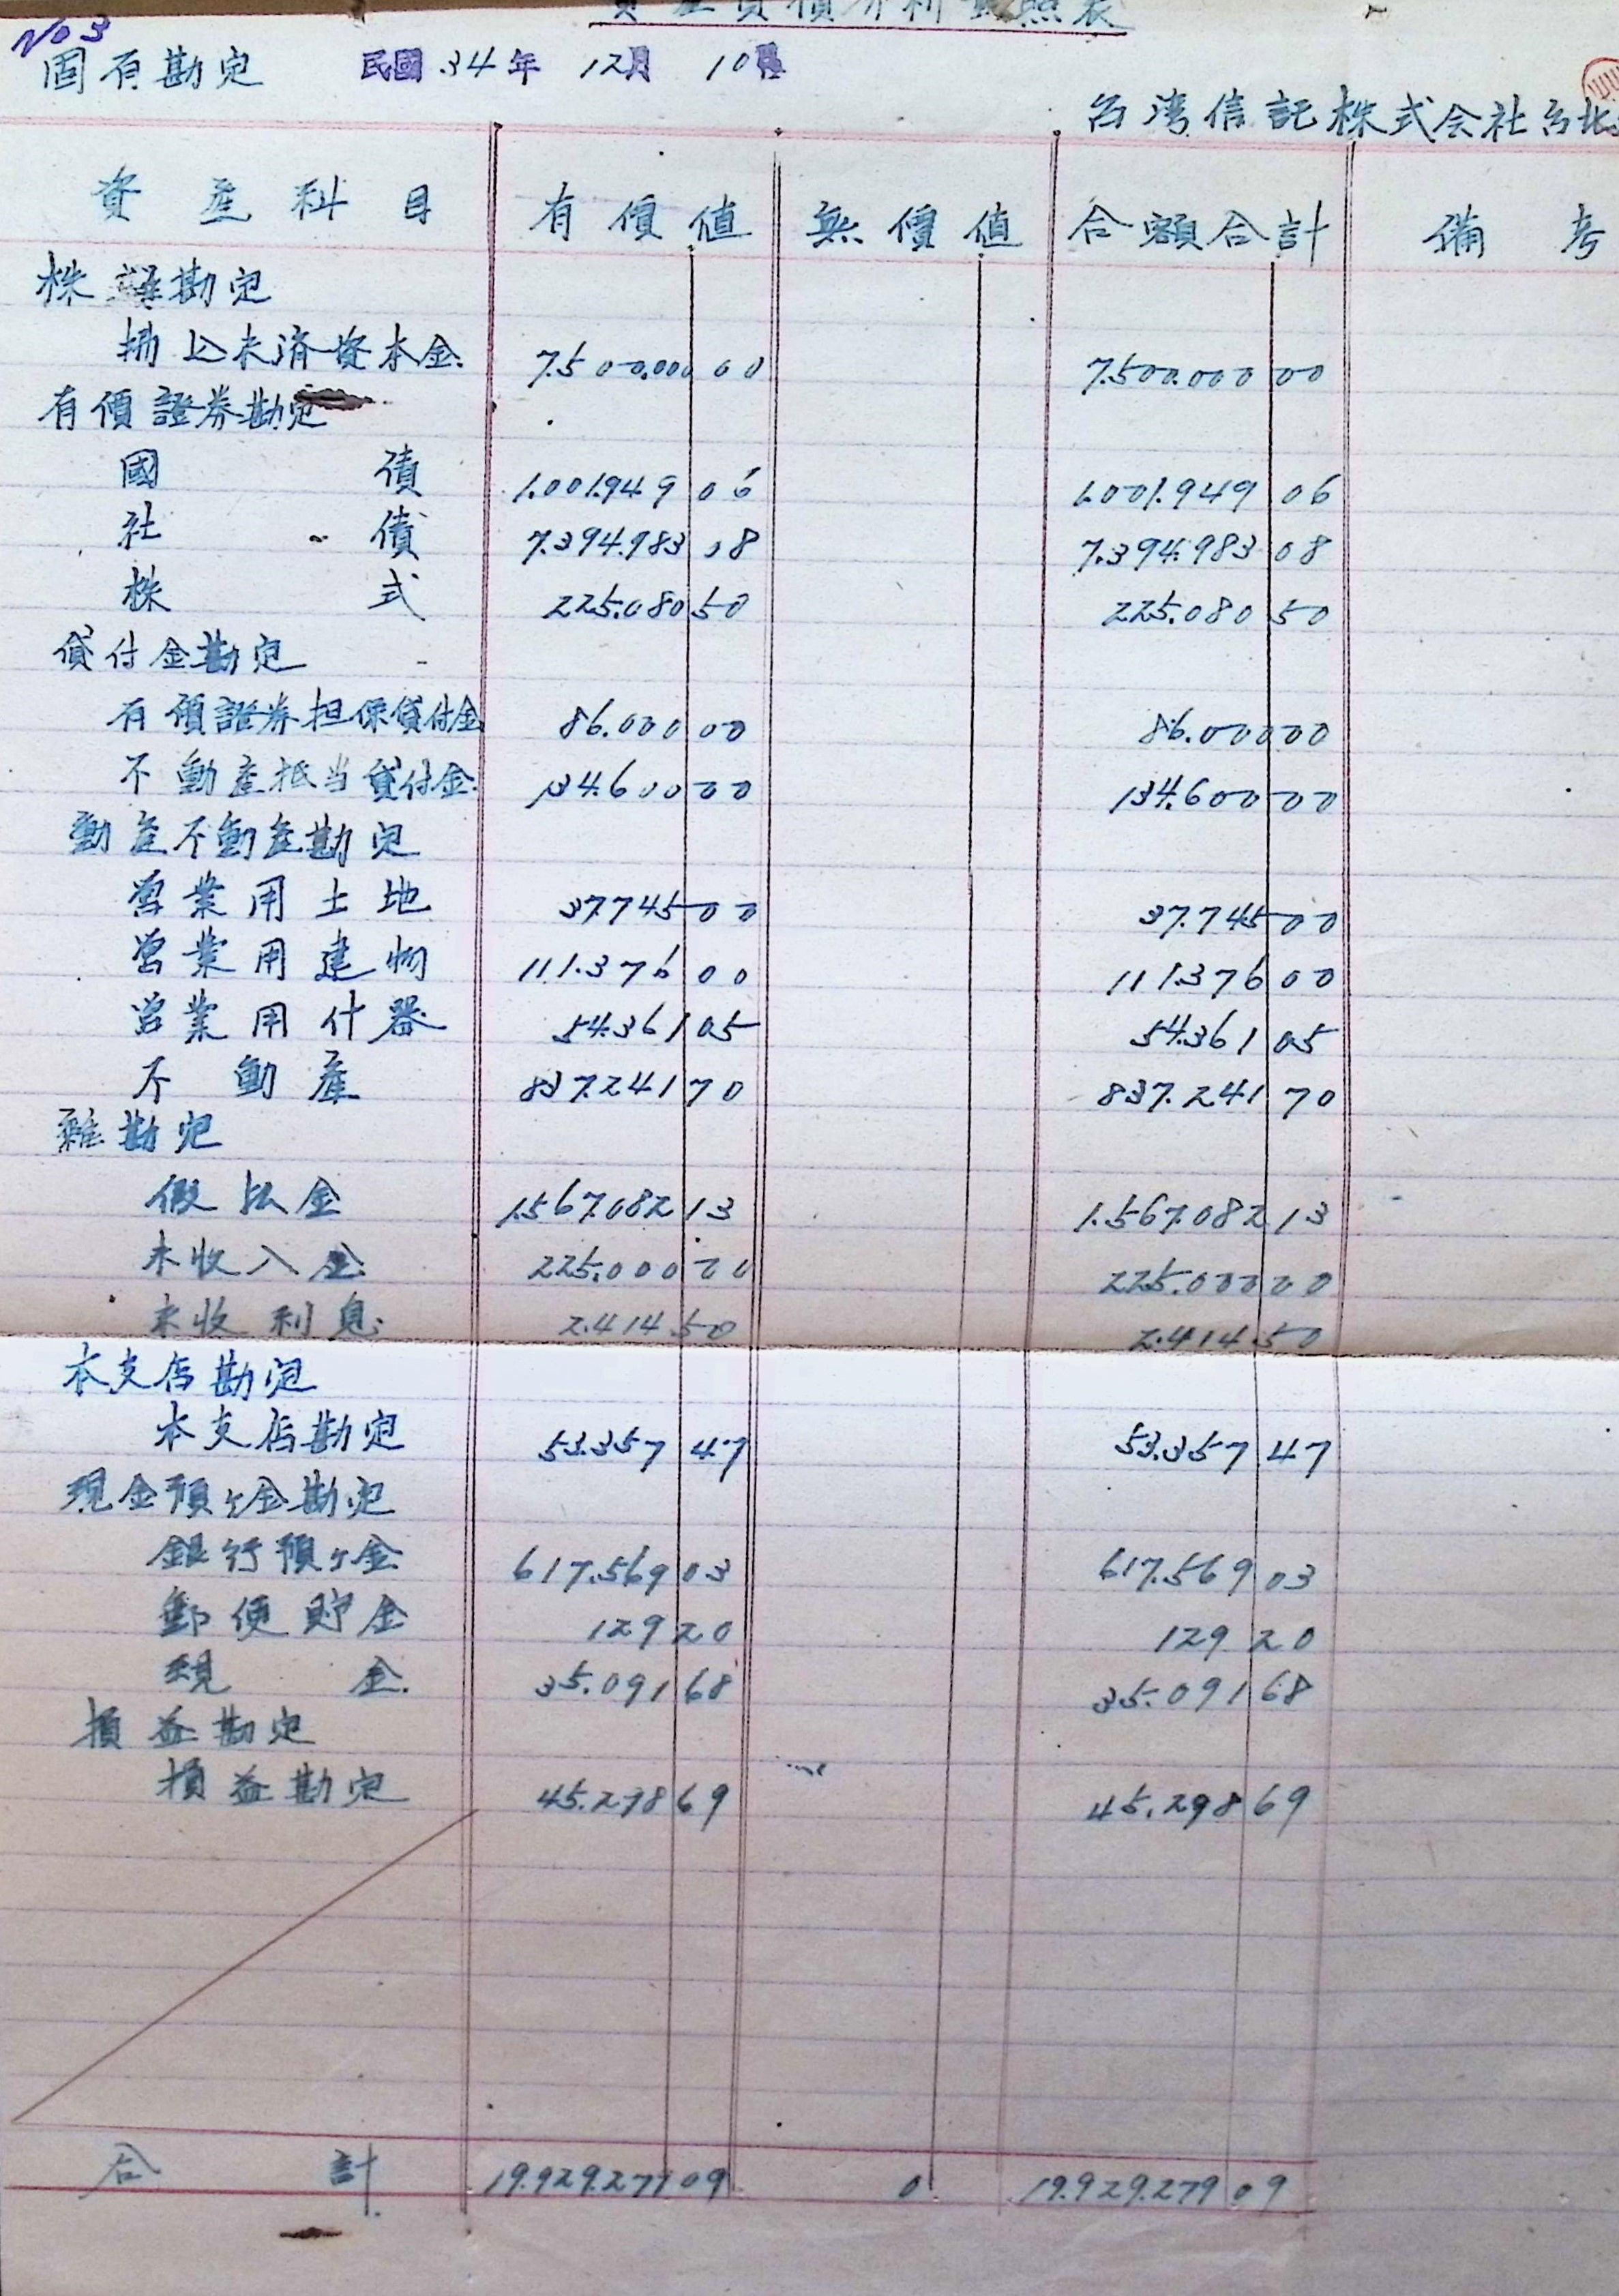 No 3
資産負債分析對照表
固有勘定 民國 34 年 12月 10日
台湾信託株式会社台北
資産科目 有價值 無價值 合額合計 備考
株主勘定
拂込未済資本金 7.500.000 00 7.500.000 00
有價證券勘定
國債 1.001.949 06 1.001.949 06
社債 7.394.983 08 7.394.983 08
株式 225.080 50 225.080 50
貸付金勘定
有價證券担保貸付金 86.000 00 86.000 00
不動産抵当貸付金 134.600 00 134.600 00
動産不動産勘定
営業用土地 37.745 00 37.745 00
営業用建物 111.376 00 111.376 00
営業用什器 54.361 05 54.361 05
不動産 837.241 70 837.241 70
雜勘定
假払金 1.567.082 13 1.567.082 13
未收入金 225.000 00 225.000 00
未收利息 2.414 50 2.414 50
本支店勘定
本支店勘定 53.357 47 53.357 47
現金預ヶ金勘定
銀行預ヶ金 617.569 03 617.569 03
郵便貯金 129 20 129 20
現金 35.091 68 35.091 68
損益勘定
損益勘定 45.298 69 45.298 69
合計 19.929.279 09 0 19.929.279 09